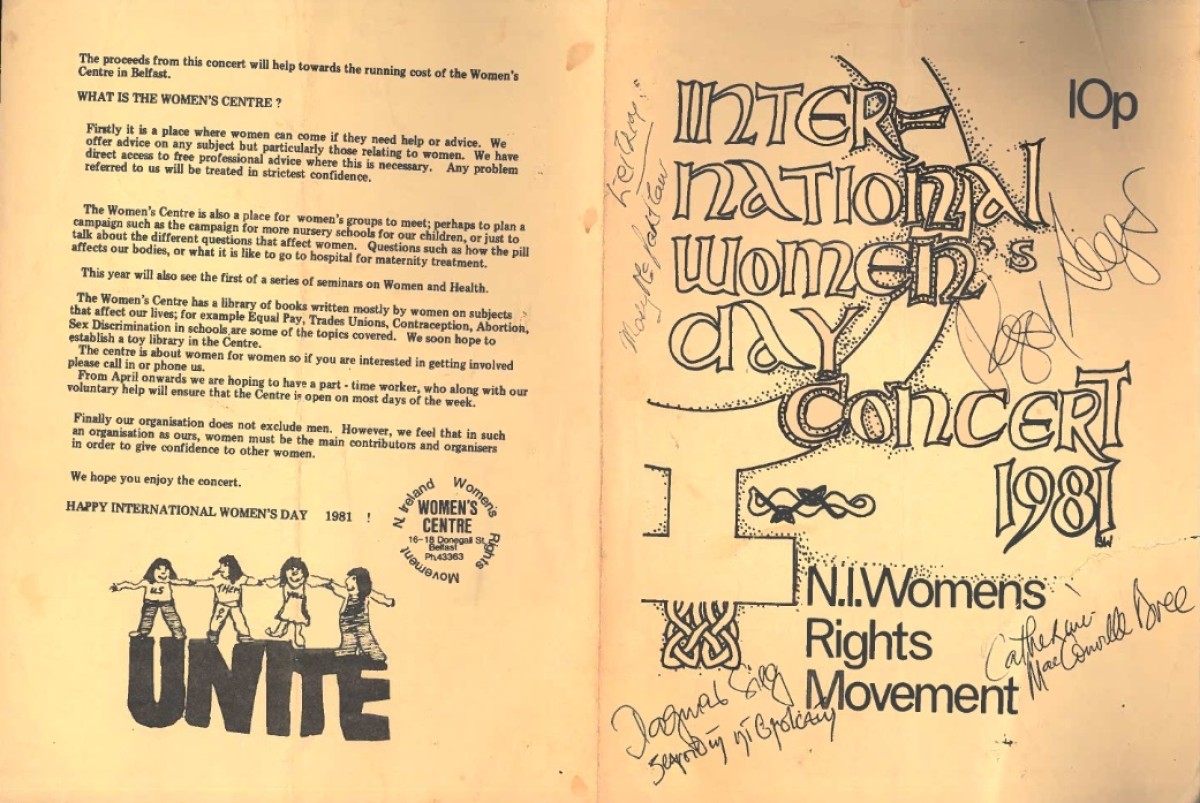 The proceeds from this concert will help towards the running cost of the Women's
Centre in Belfast.
WHAT IS THE WOMEN'S CENTRE ?
Firstly it is a place where women can come if they need help or advice. We
offer advice on any subject but particularly those relating to women. We have
direct access to free professional advice where this is necessary. Any problem
referred to us will be treated in strictest confidence.
The Women's Centre is also a place for women's groups to meet; perhaps to plan a
campaign such as the campaign for more nursery schools for our children, or just to
talk about the different questions that affect women. Questions such as how the pill
affects our bodies, or what it is like to go to hospital for maternity treatment.
This year will also see the first of a series of seminars on Women and Health.
The Women's Centre has a library of books written mostly by women on subjects
that affect our lives; for example Equal Pay, Trades Unions, Contraception, Abortion,
Sex Discrimination in schools are some of the topics covered. We soon hope to
establish a toy library in the Centre.
The centre is about women for women so if you are interested in getting involved
please call in or phone us.
From April onwards we are hoping to have a part - time worker, who along with our
voluntary help will ensure that the Centre is open on most days of the week.
Finally our organisation does not exclude men. However, we feel that in such
an organisation as ours, women must be the main contributors and organisers
in order to give confidence to other women.
We hope you enjoy the concert.
HAPPY INTERNATIONAL WOMEN'S DAY 1981 !
N Ireland Women's Rights Movement
WOMEN'S
CENTRE
16-18 Donegall St.
Belfast
Ph.43363
US THEM
UNITE
10p
INTER-
NATIONAL
WOMEN'S
DAY
CONCERT
1981
Peggy Seeger
N.I.Womens
Rights
Movement
Catherine
MacConville Bree
Dagmar